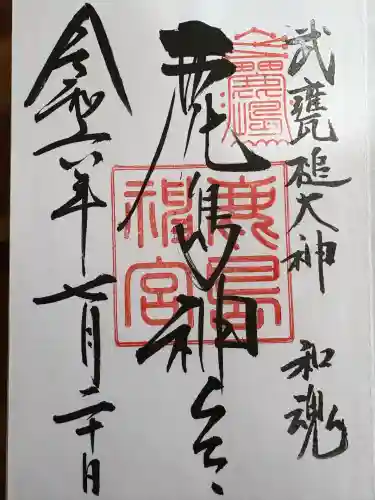 武甕槌大神
和魂
鹿島神宮
鹿島神宮
令和六年七月二十日